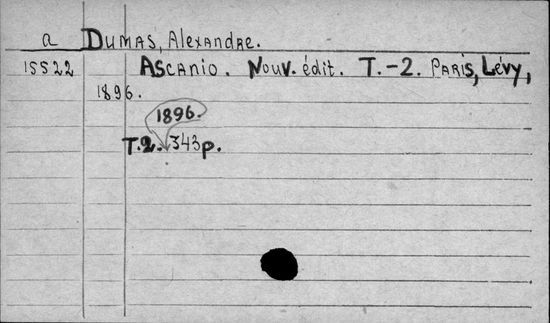 a DUMAS, Alexandre.
15522 Ascanio. Nouv. édit. T.-2. PARIS, Lévy,
1896.
1896.
T.2. 343p.